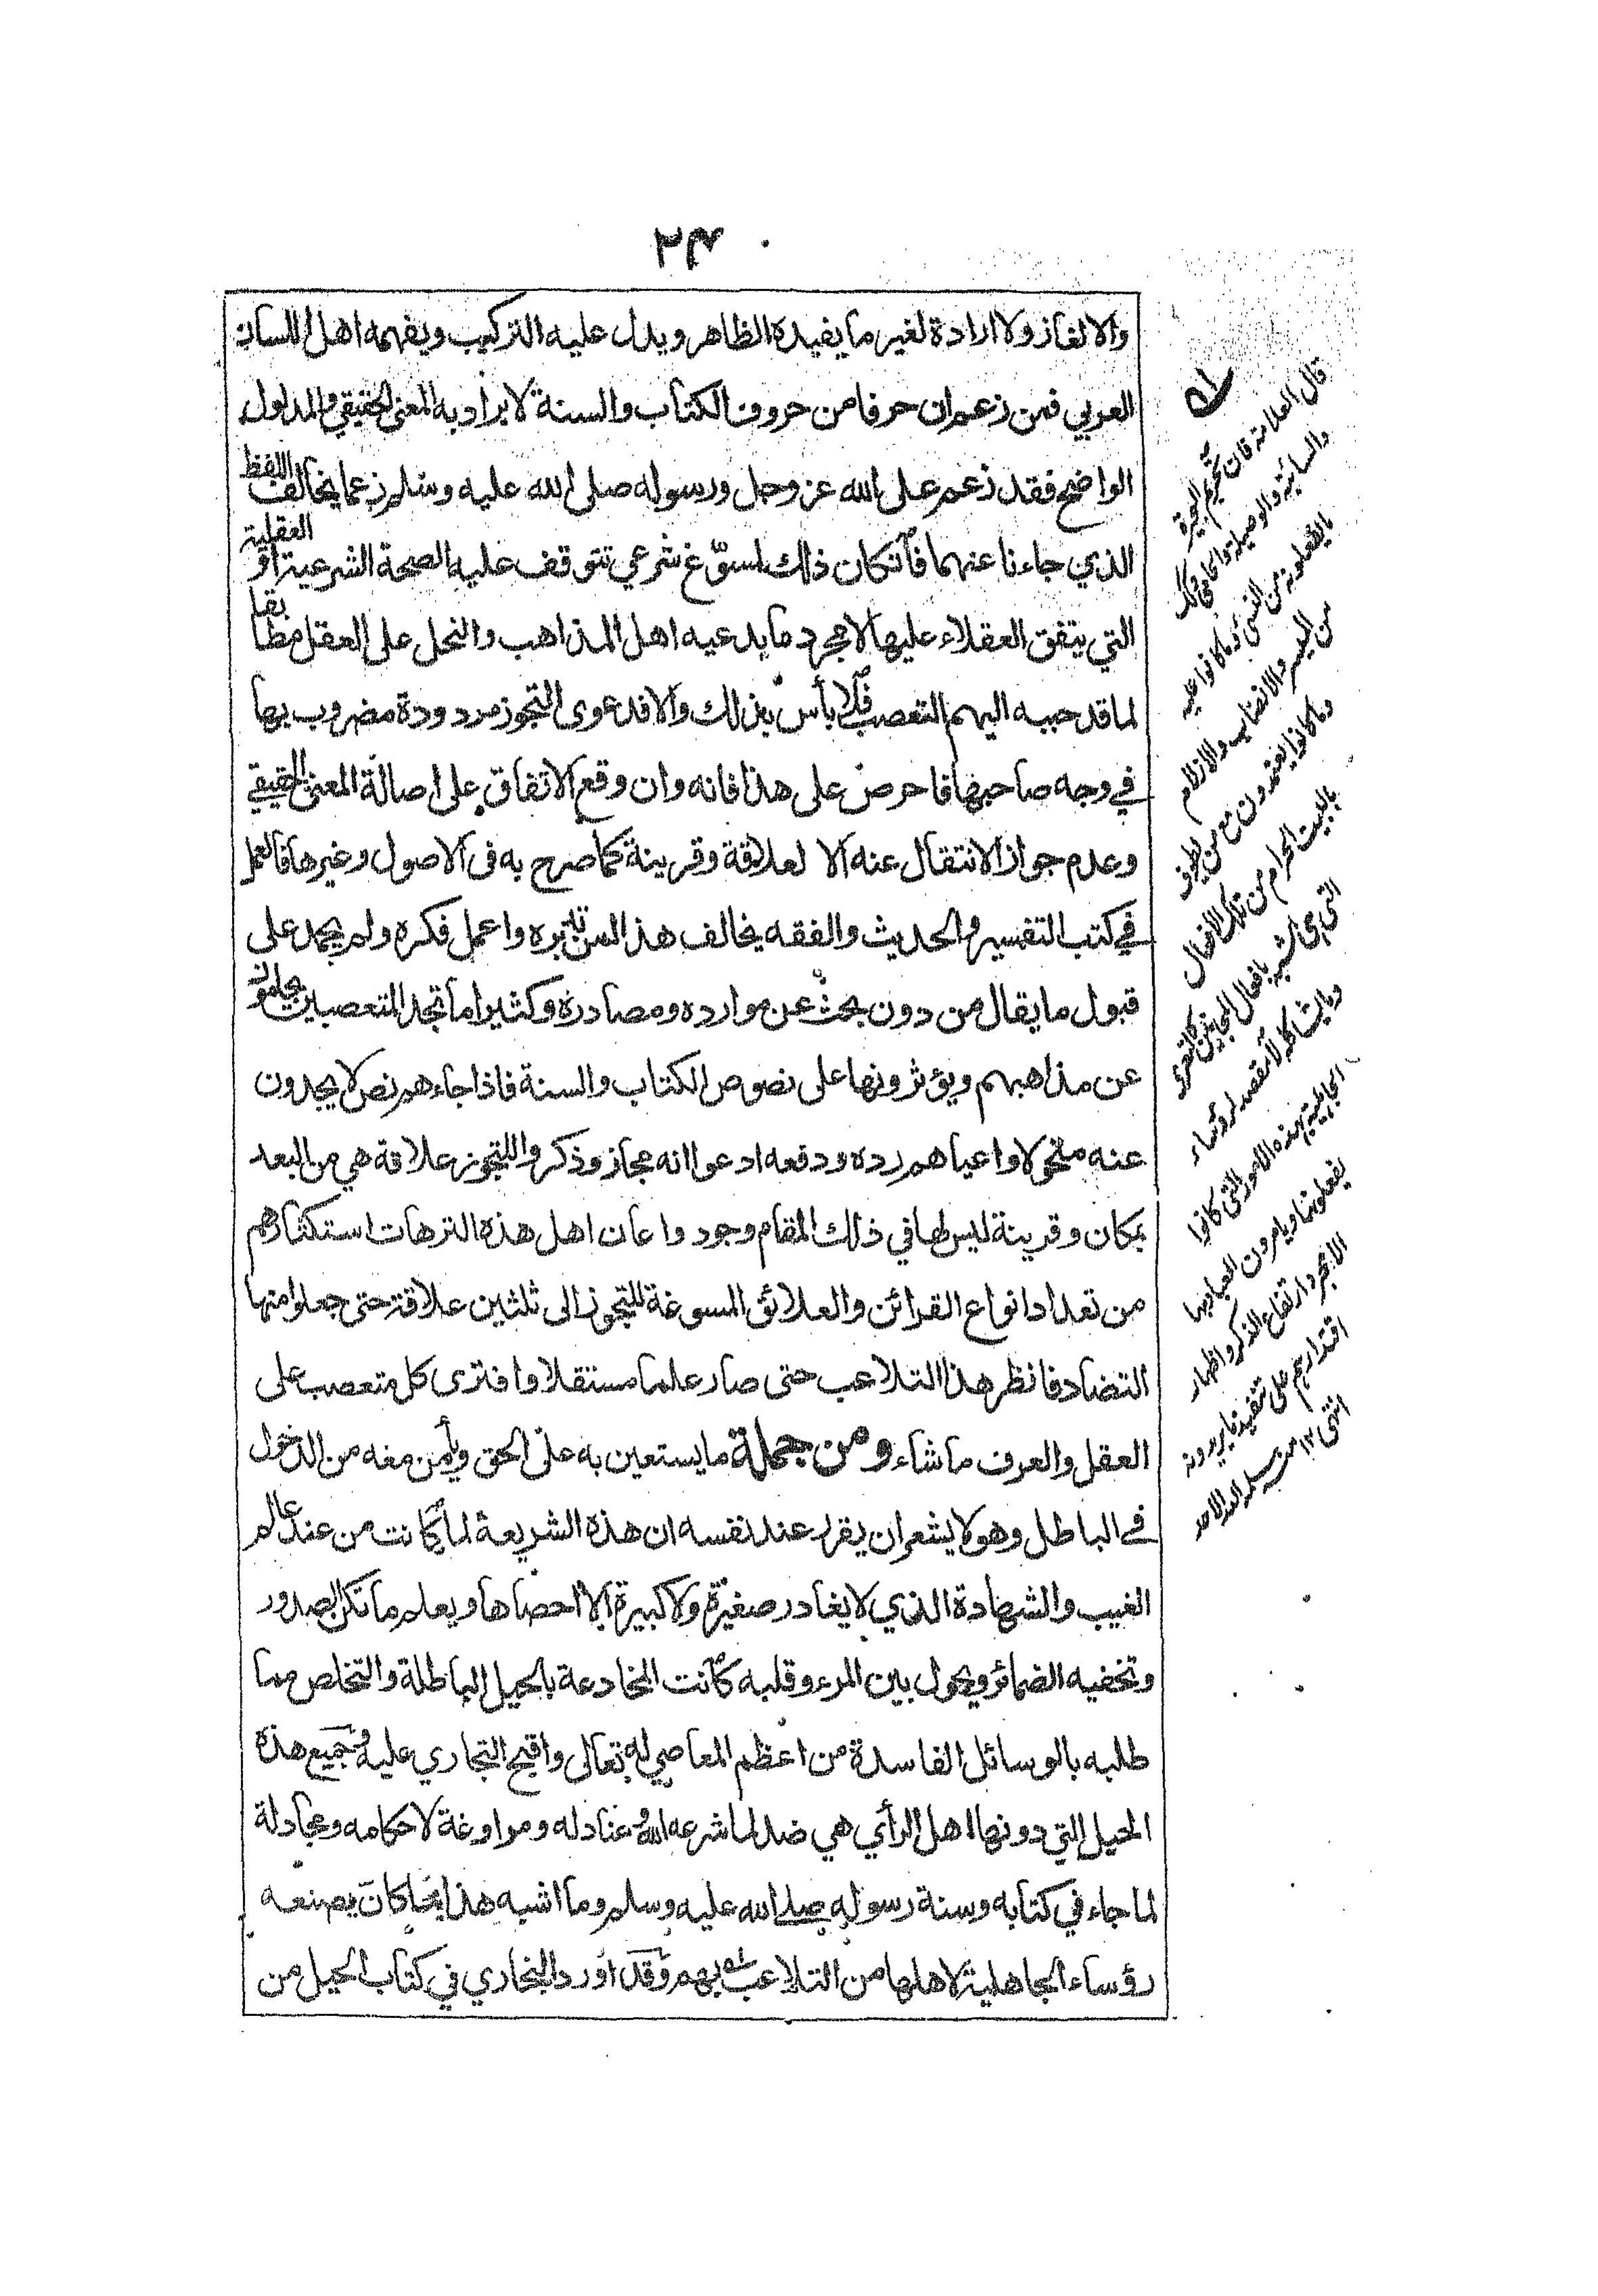 ٢٤
والالغاز ولا ارادة لغير ما يفيده الظاهر ويدل عليه التركيب ويفهمه اهل اللسان
العربي فمن زعم ان حرفا من حروف الكتاب والسنة لا يراد به المعنى الحقيقي والمدلول
الواضح فقد زعم على الله عز وجل ورسوله صلى الله عليه وسلم زعما يخالف اللفظ
الذي جاءنا عنهما فان كان ذلك لمسوّغ شرعي تتوقف عليه الصحة الشرعية او العقلية
التي يتفق العقلاء عليها لا مجرد ما يدعيه اهل المذاهب والنحل على العقل مطابقا
لما قد حببه اليهم التعصب فلا بأس بذلك والا فدعوى التجوز مردودة مضروب بها
في وجه صاحبها فاحرص على هذا فانه وان وقع الاتفاق على اصالة المعنى الحقيقي
وعدم جواز الانتقال عنه الا لعلاقة وقرينة كما صرح به فى الاصول وغيرها فالعمل
في كتب التفسير والحديث والفقه يخالف هذا لمن تدبره واعمل فكره ولم يجمد على
قبول ما يقال من دون بحث عن موارده ومصادره وكثيرا ما تجد المتعصبين يحامون
عن مذاهبهم ويؤثرونها على نصوص الكتاب والسنة فاذا جاءهم نص لا يجدون
عنه متحولا واعياهم رده ودفعه ادعوا انه مجاز وذكروا للتجوز علاقة هي من البعد
بمكان وقرينة ليس لها في ذلك المقام وجود واعان اهل هذه الترهات استكثارهم
من تعداد انواع القرائن والعلائق المسوغة للتجوز الى ثلثين علاقة حتى جعلوا منها
التضاد فانظر هذا التلاعب حتى صار علما مستقلا وافترى كل متعصب على
العقل والعرف ما شاء ومن جملة ما يستعين به على الحق ويأمن معه من الدخول
في الباطل وهو لا يشعر ان يقرر عند نفسه ان هذه الشريعة لما كانت من عند عالم
الغيب والشهادة الذي لا يغادر صغيرة ولا كبيرة الا احصاها ويعلم ما تكن الصدور
وتخفيه الضمائر ويحول بين المرء وقلبه كانت المخادعة بالحيل الباطلة والتخلص مما
طلبه بالوسائل الفاسدة من اعظم المعاصي له تعالى واقبح التجاري عليه وجميع هذه
الحيل التي دونها اهل الرأي هي ضد لما شرعه الله وعناد له ومراوغة لاحكامه ومجادلة
لما جاء في كتابه وسنة رسوله صلى الله عليه وسلم وما اشبه هذا بما كان يصنعه
رؤساء الجاهلية لاهلها من التلاعب بهم وقد اورد البخاري في كتاب الحيل من
قال العلامة فان تحريم البحيرة
والسائبة والوصيلة والحامي وكذلك
ما يفعلونه من النسئ وما كانوا عليه
من الميسر والانصاب والازلام
وما كانوا يعتمدون مع من يطوف
بالبيت الحرام من تلك الافعال
التي هي اشبه بافعال المجانين كالتعري
وما يشاكله لا مقصد لرؤساء
الجاهلية بهذه الامور التي كانوا
يفعلونها ويامرون العباد بها
الا مجرد ارتفاع الذكر واظهار
اقتدارهم على تنفيذ ما يريدونه
انتهى ١٢